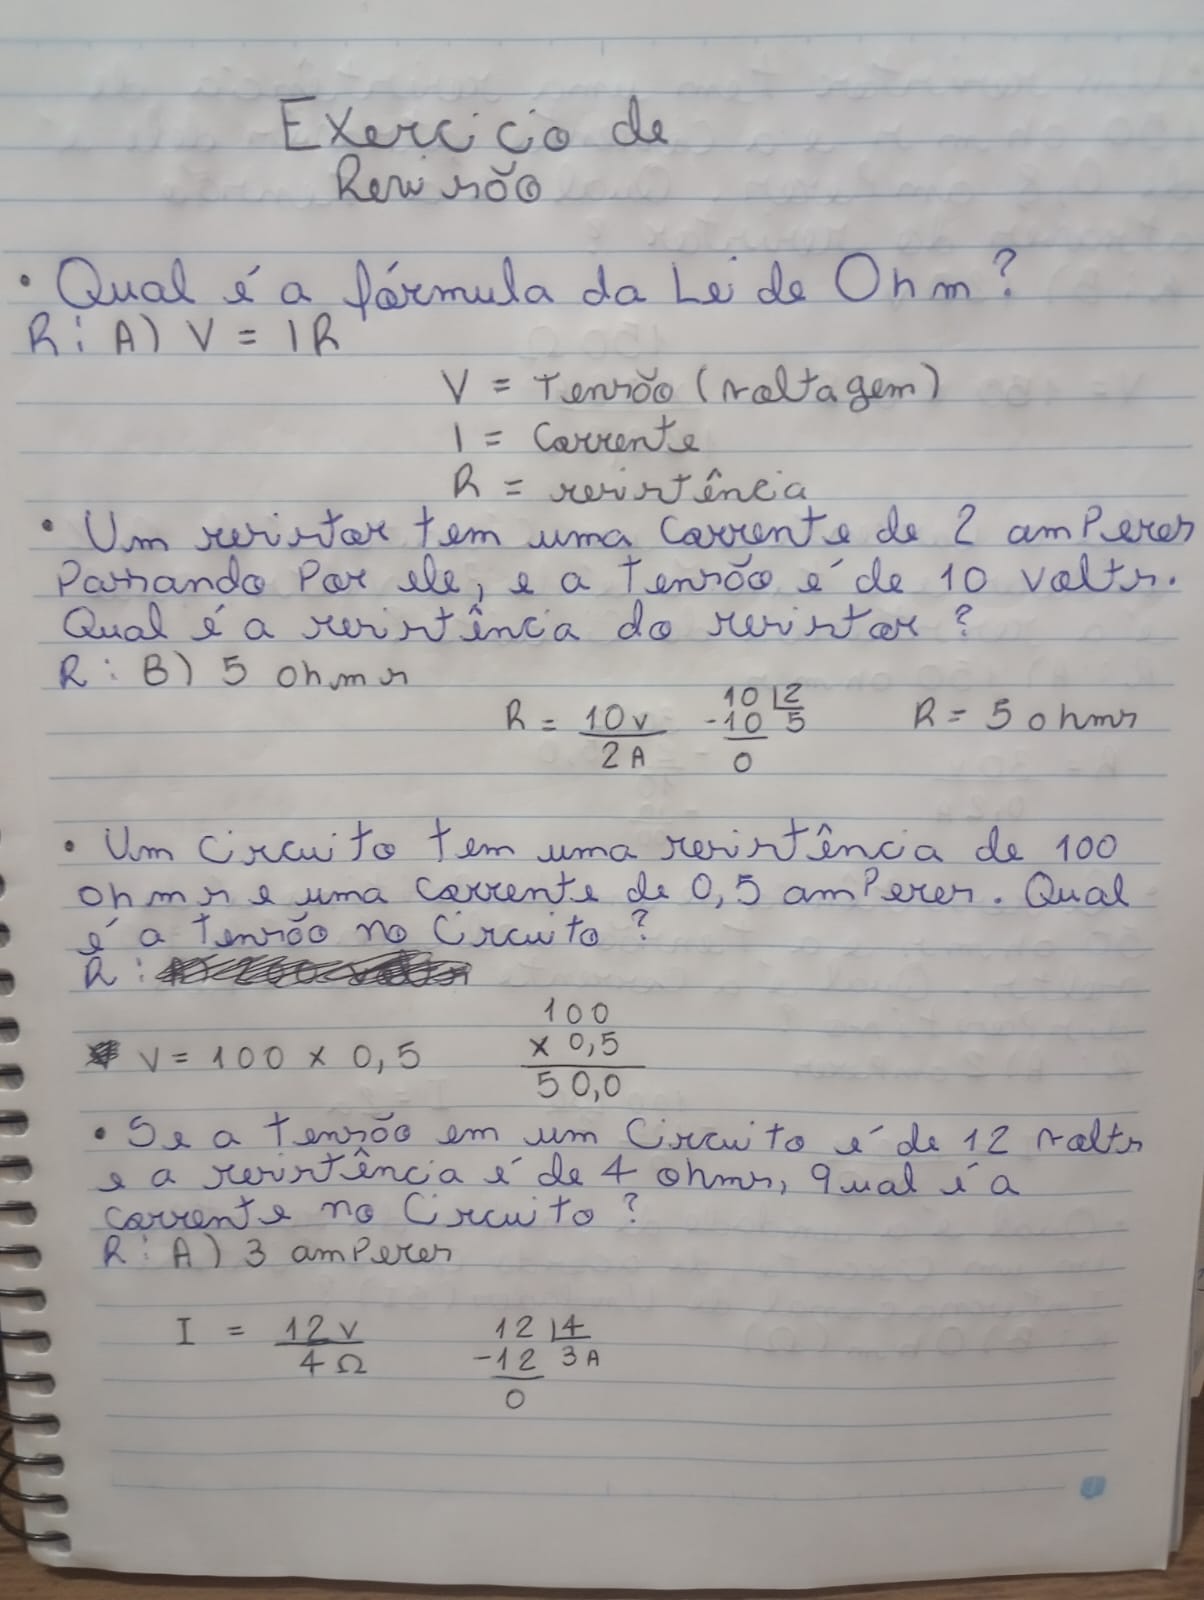 Exercicio de
Revisão
• Qual é a fórmula da Lei de Ohm?
R: A) V = IR
V = Tensão (voltagem)
I = Corrente
R = resistência
• Um resistor tem uma corrente de 2 amperes
Passando Por ele, e a tensão é de 10 volts.
Qual é a resistência do resistor?
R: B) 5 ohms
R = 10v / 2A   10 |2   R = 5 ohms
-10 5
0
• Um circuito tem uma resistência de 100
ohms e uma corrente de 0,5 amperes. Qual
é a tensão no circuito?
R:
100
V = 100 x 0,5   x 0,5
50,0
• Se a tensão em um circuito é de 12 volts
e a resistência é de 4 ohms, qual é a
corrente no circuito?
R: A) 3 amperes
I = 12v / 4Ω   12 |4
-12 3A
0